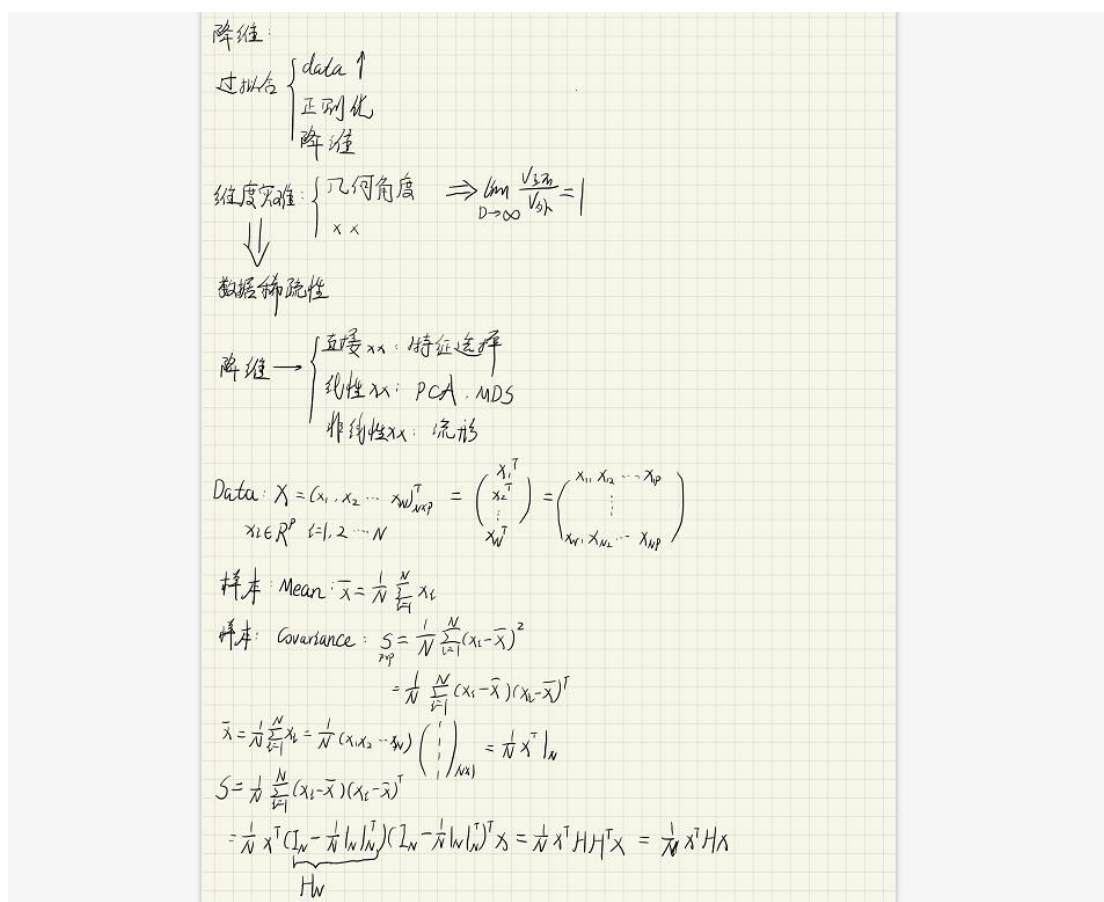 降维:
过拟合 { data ↑
正则化
降维
维度灾难: { 几何角度 ⇒ lim D→∞ V环/V外 = 1
x x
⇓
数据稀疏性
降维 → { 直接xx: 特征选择
线性xx: PCA. MDS
非线性xx: 流形
Data: X = (x₁, x₂ ⋯ x_N)ᵀ_{N×p} = (x₁ᵀ x₂ᵀ ⋮ x_Nᵀ) = (x₁₁ x₁₂ ⋯ x₁p ⋮ x_{N1} x_{N2} ⋯ x_{Np})
xᵢ∈Rᵖ i=1, 2 ⋯ N
样本: Mean: x̄ = 1/N Σ_{i=1}^N xᵢ
样本: Covariance: S_{p×p} = 1/N Σ_{i=1}^N (xᵢ-x̄)²
= 1/N Σ_{i=1}^N (xᵢ-x̄)(xᵢ-x̄)ᵀ
x̄ = 1/N Σ_{i=1}^N xᵢ = 1/N (x₁x₂ ⋯ x_N) (1 ⋮ 1)_{N×1} = 1/N xᵀ 1_N
S = 1/N Σ_{i=1}^N (xᵢ-x̄)(xᵢ-x̄)ᵀ
= 1/N xᵀ(I_N - 1/N 1_N 1_Nᵀ)(I_N - 1/N 1_N 1_Nᵀ)ᵀ x = 1/N xᵀHHᵀx = 1/N xᵀHx
H_N